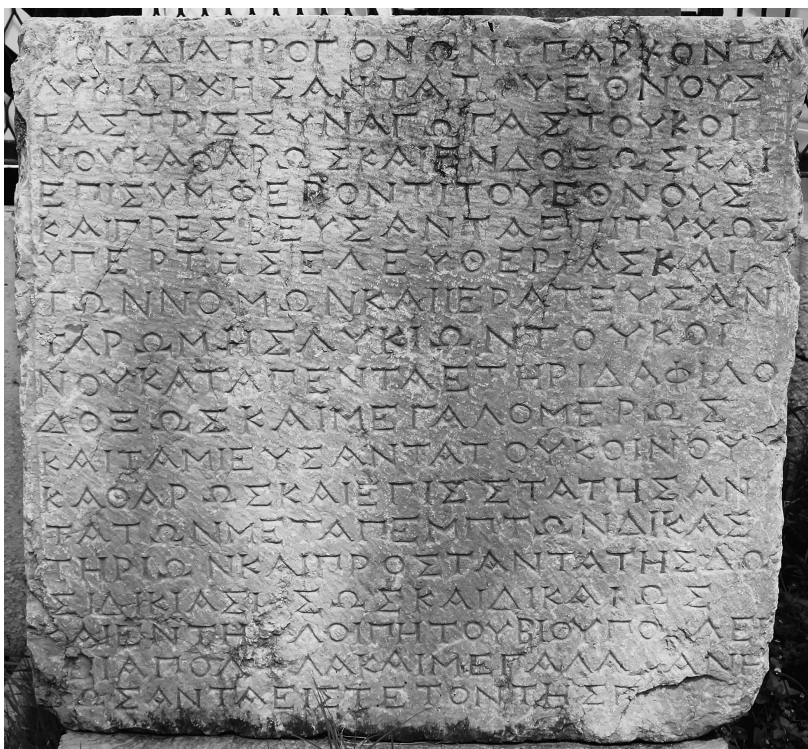 ΩΝΔΙΑΠΡΟΓΟΝΩΝΥΠΑΡΧΟΝΤΑ
ΛΥΚΙΑΡΧΗΣΑΝΤΑΤ ΥΕΘΝΟΥΣ
ΤΑΣΤΡΙΣΣΥΝΑΓΩΓΑΣΤΟΥΚΟΙ
ΝΟΥΚΑΘΑΡΩΣΚΑΙΕΝΔΟΞΩΣΚΑΙ
ΕΠΙΣΥΜΦΕΡΟΝΤΙΤΟΥΕΘΝΟΥΣ
ΚΑΙΠΡΕΣΒΕΥΣΑΝΤΑΕΠΙΤΥΧΩΣ
ΥΠΕΡΤΗΣΕΛΕΥΘΕΡΙΑΣΚΑΙ
ΤΩΝΝΟΜΩΝΚΑΙΙΕΡΑΤΕΥΣΑΝ
ΤΑΡΩΜΗΣΛΥΚΙΩΝΤΟΥΚΟΙ
ΝΟΥΚΑΤΑΠΕΝΤΑΕΤΗΡΙΔΑΦΙΛΟ
ΔΟΞΩΣΚΑΙΜΕΓΑΛΟΜΕΡΩΣ
ΚΑΙΤΑΜΙΕΥΣΑΝΤΑΤΟΥΚΟΙΝΟΥ
ΚΑΘΑΡΩΣΚΑΙΕΠΙΣΣΤΑΤΗΣΑΝ
ΤΑΤΩΝΜΕΤΑΠΕΜΠΤΩΝΔΙΚΑΣ
ΤΗΡΙΩΝΚΑΙΠΡΟΣΤΑΝΤΑΤΗΣΔΩ
ΣΙΔΙΚΙΑΣΙΣΩΣΚΑΙΔΙΚΑΙΩΣ
ΚΑΙΕΝΤΗ ΛΟΙΠΗΤΟΥΒΙΟΥΠΟ ΛΕΙ
ΙΑΠΟΛ ΛΑΚΑΙΜΕΓΑΛΑ ΑΝΕ
ΩΣΑΝΤΑΕΙΣΤΕΤΟΝΤΗΣ